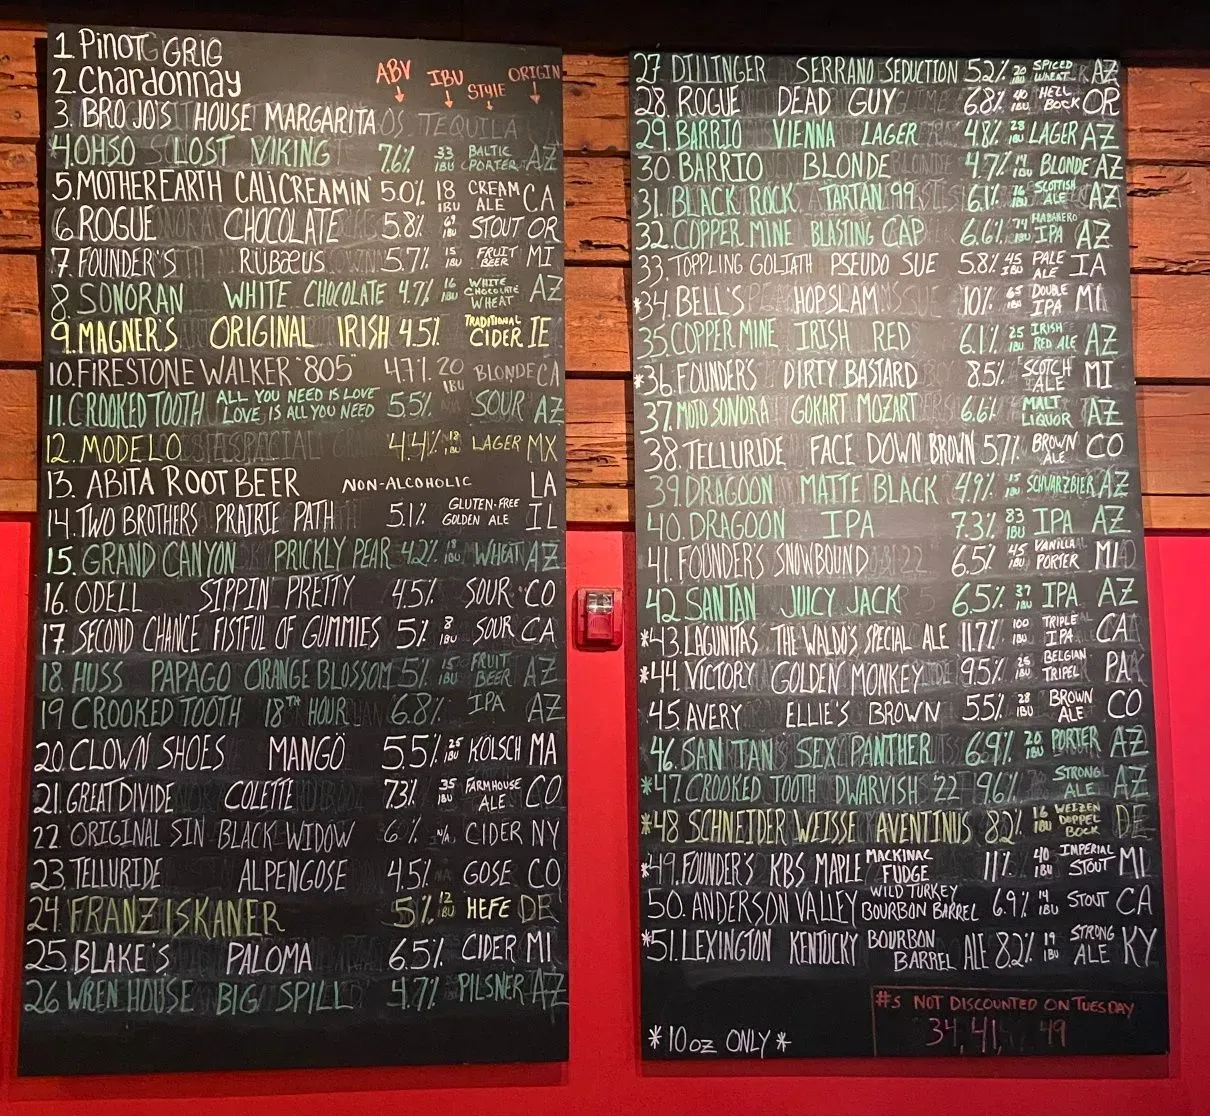 ABV IBU STYLE ORIGIN
1 PiNOT GRiG
2. Chardonnay
3. BRO JO'S HOUSE MARGARITA
*4. OHSO LOST VIKING 7.6% 33 IBU BALTIC PORTER AZ
5. MOTHER EARTH CALI CREAMIN' 5.0% 18 IBU CREAM ALE CA
6. ROGUE CHOCOLATE 5.8% 69 IBU STOUT OR
7. FOUNDER'S RÜBÆUS 5.7% 15 IBU FRUIT BEER MI
8. SONORAN WHITE CHOCOLATE 4.7% 16 IBU WHITE CHOCOLATE WHEAT AZ
9. MAGNER'S ORIGINAL IRISH 4.5% TRADITIONAL CIDER IE
10. FIRESTONE WALKER "805" 4.7% 20 IBU BLONDE CA
11. CROOKED TOOTH ALL YOU NEED IS LOVE LOVE IS ALL YOU NEED 5.5% SOUR AZ
12. MODELO 4.4% 12 IBU LAGER MX
13. ABITA ROOT BEER NON-ALCOHOLIC LA
14. TWO BROTHERS PRAIRIE PATH 5.1% GLUTEN-FREE GOLDEN ALE IL
15. GRAND CANYON PRICKLY PEAR 4.2% 18 IBU WHEAT AZ
16. ODELL SIPPIN' PRETTY 4.5% SOUR CO
17. SECOND CHANCE FISTFUL OF GUMMIES 5% 8 IBU SOUR CA
18. HUSS PAPAGO ORANGE BLOSSOM 5% 15 IBU FRUIT BEER AZ
19 CROOKED TOOTH 18TH HOUR 6.8% IPA AZ
20. CLOWN SHOES MANGÖ 5.5% 25 IBU KÖLSCH MA
21. GREAT DIVIDE COLETTE 7.3% 35 IBU FARMHOUSE ALE CO
22 ORIGINAL SIN BLACK WIDOW 6% N/A CIDER NY
23. TELLURIDE ALPENGOSE 4.5% GOSE CO
24. FRANZISKANER 5% 12 IBU HEFE DE
25. BLAKE'S PALOMA 6.5% CIDER MI
26 WREN HOUSE BIG SPILL 4.7% PILSNER AZ
27. DILLINGER SERRANO SEDUCTION 5.2% 20 IBU SPICED WHEAT AZ
28. ROGUE DEAD GUY 6.8% 40 IBU HELL BOCK OR
29. BARRIO VIENNA LAGER 4.8% 28 IBU LAGER AZ
30. BARRIO BLONDE 4.7% 14 IBU BLONDE AZ
31. BLACK ROCK TARTAN 99 6.1% 16 IBU SCOTTISH ALE AZ
32. COPPER MINE BLASTING CAP 6.6% 74 IBU HABANERO IPA AZ
33. TOPPLING GOLIATH PSEUDO SUE 5.8% 45 IBU PALE ALE IA
*34. BELL'S HOPSLAM 10% 65 IBU DOUBLE IPA MI
35. COPPER MINE IRISH RED 6.1% 25 IBU IRISH RED ALE AZ
*36. FOUNDER'S DIRTY BASTARD 8.5% SCOTCH ALE MI
37. MOTO SONORA GOKART MOZART 6.6% MALT LIQUOR AZ
38. TELLURIDE FACE DOWN BROWN 5.7% BROWN ALE CO
39. DRAGOON MATTE BLACK 4.9% 15 IBU SCHWARZBIER AZ
40. DRAGOON IPA 7.3% 83 IBU IPA AZ
41. FOUNDER'S SNOWBOUND 6.5% 45 IBU VANILLA PORTER MI
42. SANTAN JUICY JACK 6.5% 37 IBU IPA AZ
*43. LAGUNITAS THE WALDO'S SPECIAL ALE 11.7% 100 IBU TRIPLE IPA CA
*44. VICTORY GOLDEN MONKEY 9.5% 25 IBU BELGIAN TRIPEL PA
45. AVERY ELLIE'S BROWN 5.5% 28 IBU BROWN ALE CO
46. SAN TAN SEX PANTHER 6.9% 20 IBU PORTER AZ
*47. CROOKED TOOTH DWARVISH '22 9.6% STRONG ALE AZ
*48 SCHNEIDER WEISSE AVENTINUS 8.2% 16 IBU WEIZEN DOPPEL BOCK DE
*49. FOUNDER'S KBS MAPLE MACKINAC FUDGE 11% 40 IBU IMPERIAL STOUT MI
50. ANDERSON VALLEY WILD TURKEY BOURBON BARREL 6.9% 14 IBU STOUT CA
*51. LEXINGTON KENTUCKY BOURBON BARREL ALE 8.2% 19 IBU STRONG ALE KY
#s NOT DISCOUNTED ON TUESDAY
34, 41, 49
*10oz ONLY*